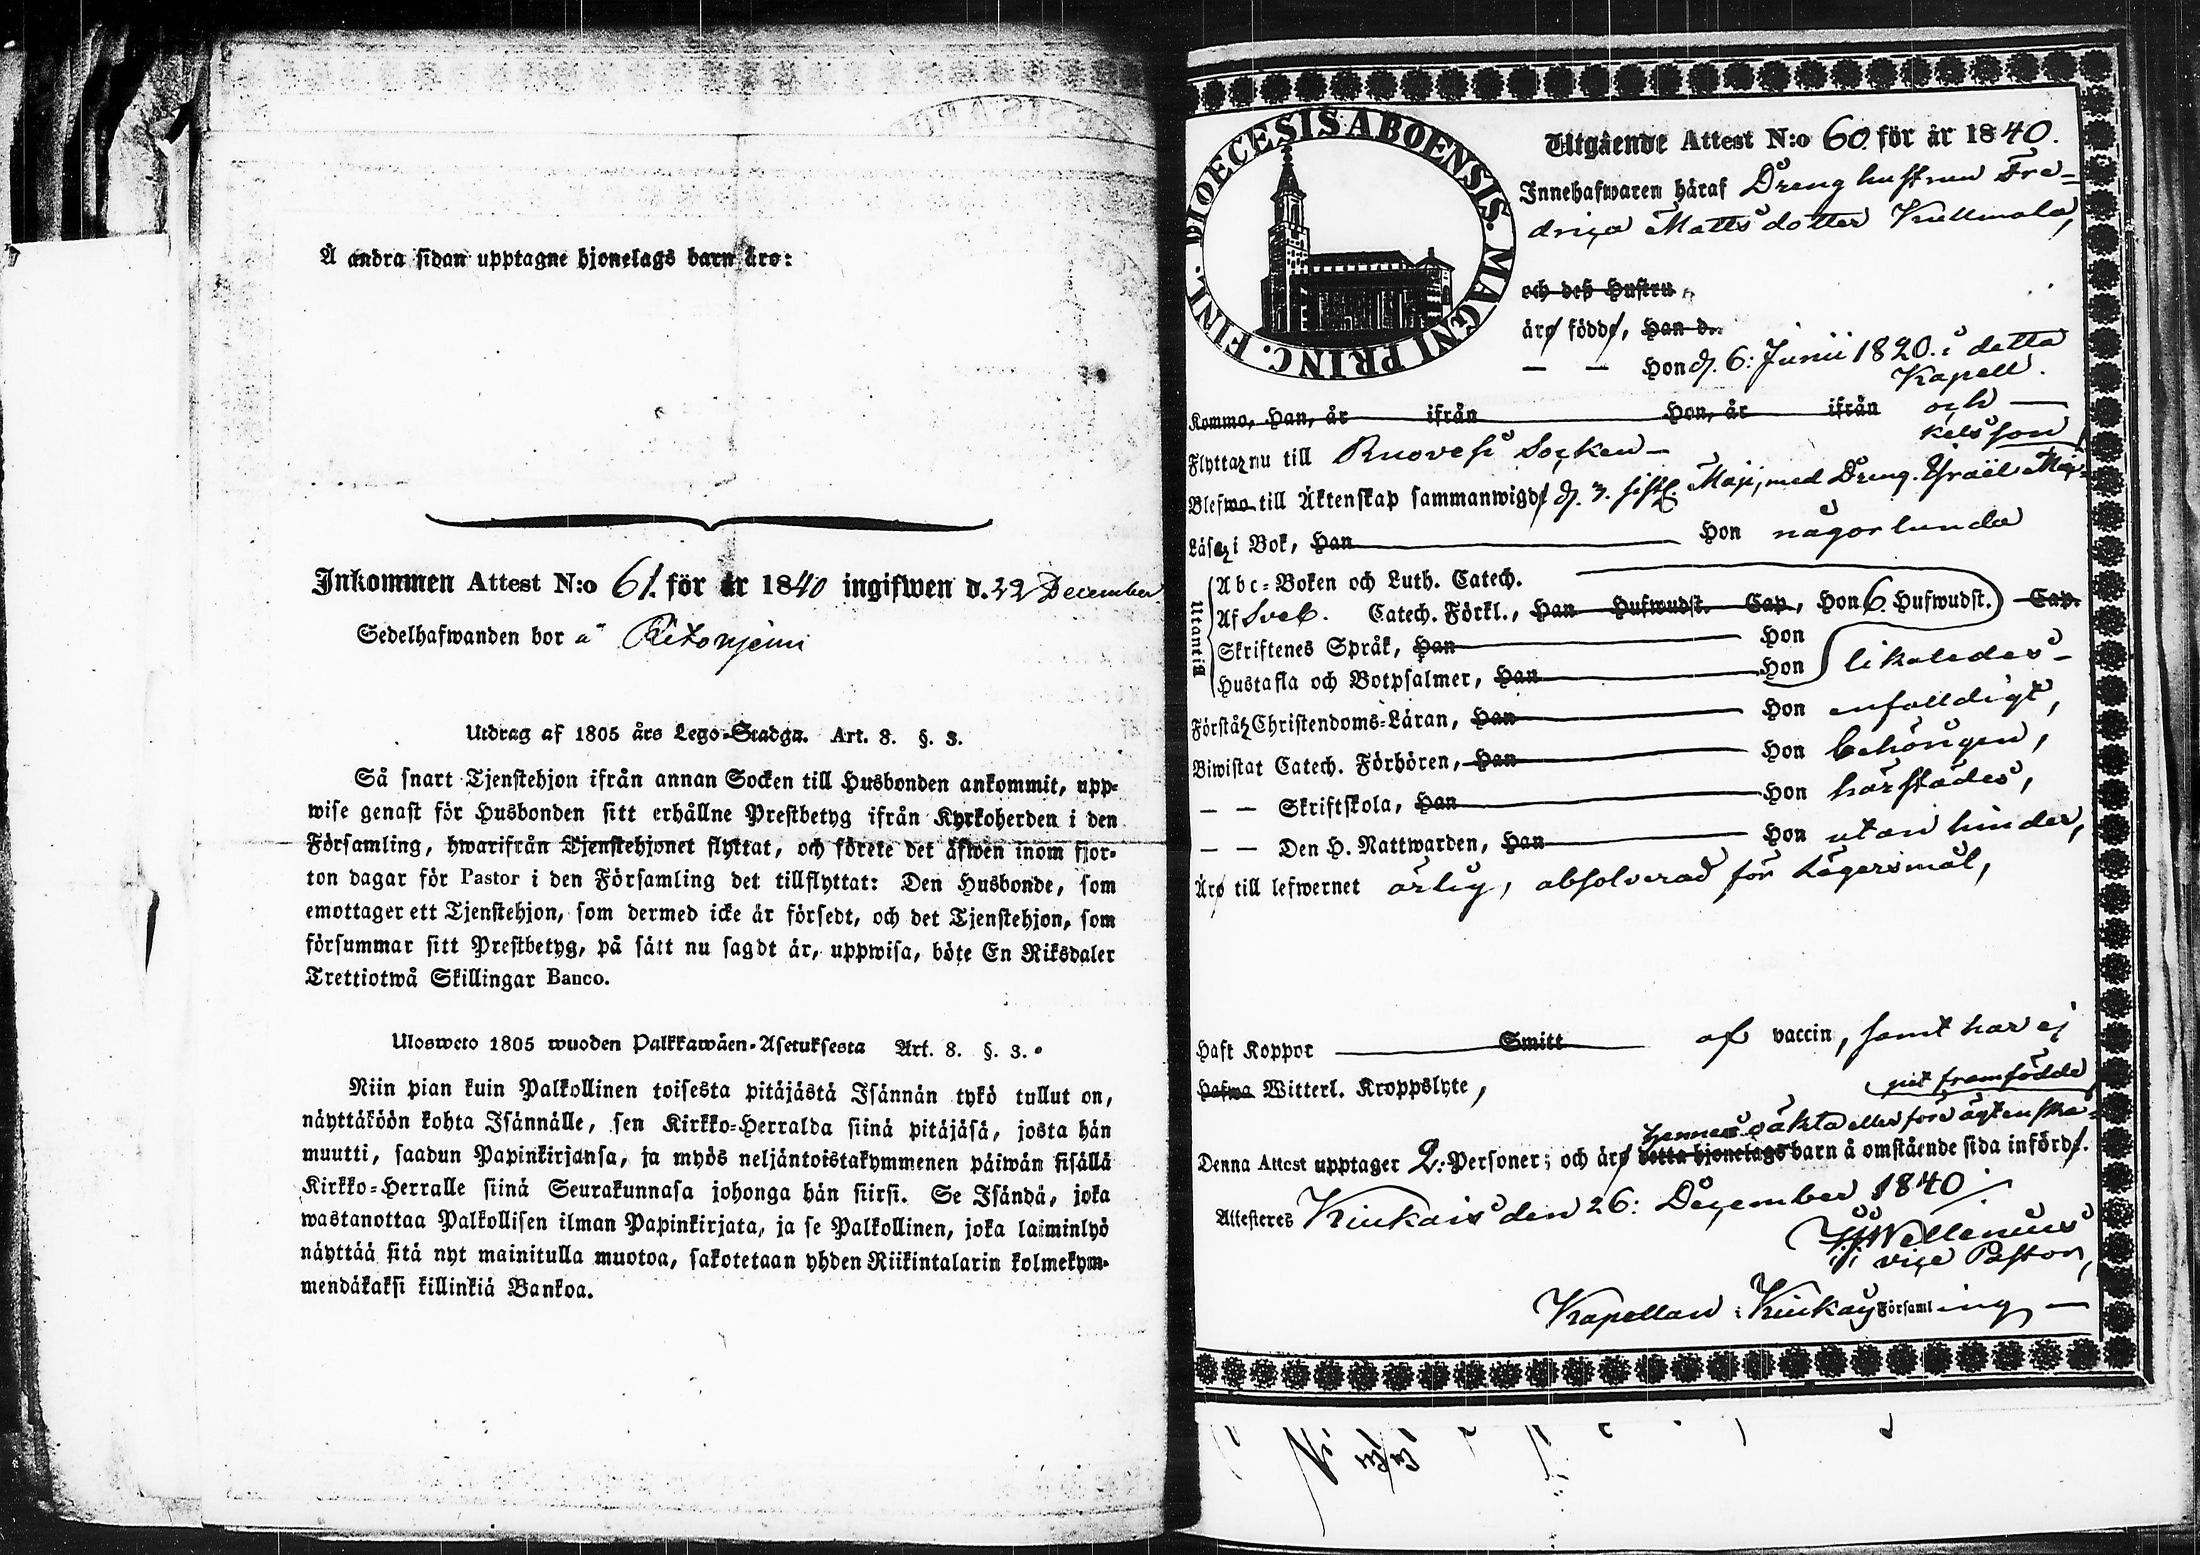 Å andra sidan upptagne hjonelags barn äro:
Inkommen Attest N:o 61. för år 1840 ingifwen d. 22 December
Sedelhafwanden bor å
Utdrag af 1805 års Lego-Stadga. Art. 8. §. 3.
Så snart Tjenstehjon ifrån annan Socken till Husbonden ankommit, upp-
wise genast för Husbonden sitt erhållne Prestbetyg ifrån Kyrkoherden i den
Församling, hwarifrån Tjenstehjonet flyttat, och förete det äfwen inom fjor-
ton dagar för Pastor i den Församling det tillflyttat: Den Husbonde, som
emottager ett Tjenstehjon, som dermed icke är försedt, och det Tjenstehjon, som
försummar sitt Prestbetyg, på sätt nu sagdt är, uppwisa, böte En Riksdaler
Trettiotwå Skillingar Banco.
Ulosweto 1805 wuoden Palkkawäen-Asetuksesta Art. 8. §. 3.
Niin pian kuin Palkollinen toisesta pitäjästä Isännän tykö tullut on,
näyttäköön kohta Isännälle, sen Kirkko-Herralda siinä pitäjäsä, josta hän
muutti, saadun Papinkirjansa, ja myös neljäntoistakymmenen päiwän sisällä
Kirkko-Herralle siinä Seurakunnasa johonga hän siirsi. Se Isändä, joka
wastanottaa Palkollisen ilman Papinkirjata, ja se Palkollinen, joka laiminlyö
näyttää sitä nyt mainitulla muotoa, sakotetaan yhden Riikintalarin kolmekym-
mendäkaksi killinkiä Bankoa.
DIOECESIS ABOENSIS. MAGNI PRINC. FINL.
Utgående Attest N:o 60 för år 1840.
Innehafwaren häraf Dreng hustrun Fre-
drica Matts dotter Kullmala,
och deß Hustru
äro födde, Han d.
— — Hon d. 6: Junii 1820. i detta
Kapell.
Komma, Han, år ifrån Hon, år ifrån och —
Flyttar nu till Ruovesi Socken —
kelsson
Blefwo till Äktenskap sammanwigde d. 3. sistl. Maji, med Dreng. Israël Mic-
Läser i Bok, Han Hon någorlunda
Utantill
Abc-Boken och Luth. Catech.
Af Sveb. Catech. Förkl., Han Hufwudst. Cap., Hon 6 Hufwudst. Cap.
Skriftenes Språk, Han Hon
Hustafla och Botpsalmer, Han Hon likaledes —
Förstår Christendoms-Läran, Han Hon enfaldigt,
Biwistat Catech. Förhören, Han Hon behörigen,
— — Skriftskola, Han Hon härstädes,
— — Den H. Nattwarden, Han Hon utan hinder,
Äro till lefwernet ärlig, absolverad för lägersmål,
Haft Koppor Smitt af vaccin, samt har ej
Hafwa Witterl. Kroppslyte,
framfödde
hennes oäkta eller före ägtenska-
Denna Attest upptager 2: Personer; och äro detta hjonelags barn å omstående sida införde.
Attesteres Kiukais den 26: December 1840
Wellenius
vice Pastor,
Kapellan i Kiukais Församling —